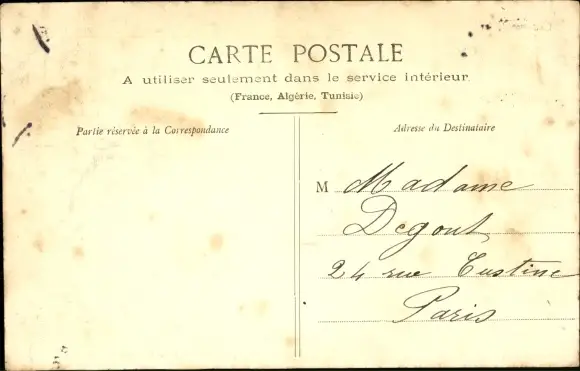 CARTE POSTALE
A utiliser seulement dans le service intérieur
(France, Algérie, Tunisie)
Partie réservée à la Correspondance
Adresse du Destinataire
M Madame
Degout
24 rue Custine
Paris